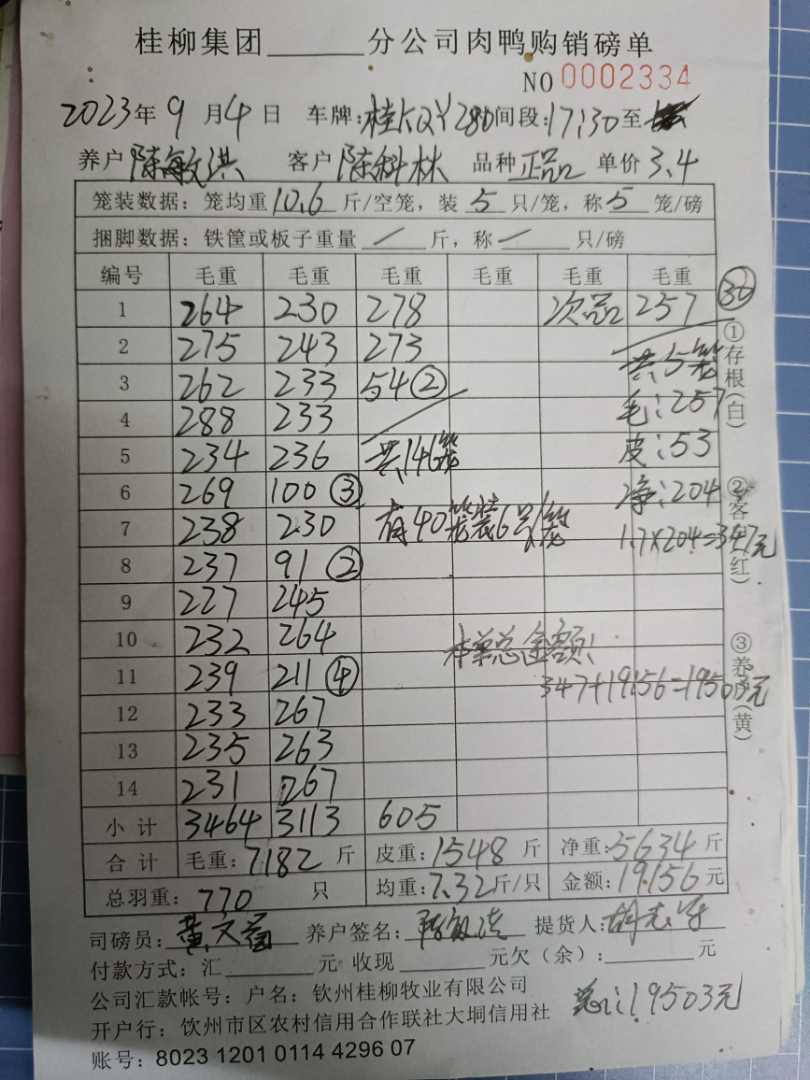 桂柳集团______分公司肉鸭购销磅单
NO 0002334
2023年9月4日 车牌:桂KQY280间段:17:30至
养户 陈敏洪 客户 陈科林 品种 正品 单价 3.4
笼装数据: 笼均重10.6斤/空笼, 装5只/笼, 称5笼/磅
捆脚数据: 铁筐或板子重量 / 斤, 称 / 只/磅
编号 毛重 毛重 毛重 毛重 毛重 毛重
1 264 230 278 次品 257 30
2 275 243 273 共5笼
3 262 233 54② 毛:257
4 288 233
5 234 236 共146笼 皮:53
6 269 100③ 净:204
7 238 230 有40笼装6只/笼 1.7×204=347元
8 237 91②
9 227 245
10 232 264 本单总金额:
11 239 211④ 347+19156=19503元
12 233 267
13 235 263
14 231 267
小计 3464 3113 605
合计 毛重:7182斤 皮重:1548斤 净重:5634斤
总羽重: 770 只 均重:7.32斤/只 金额:19156元
①存根(白)
②客(红)
③养(黄)
司磅员: 黄文 养户签名: 陈敏洪 提货人:
付款方式: 汇______元 收现______元欠(余):______元
公司汇款帐号: 户名: 钦州桂柳牧业有限公司
总:19503元
开户行: 钦州市区农村信用合作联社大垌信用社
账号: 8023 1201 0114 4296 07